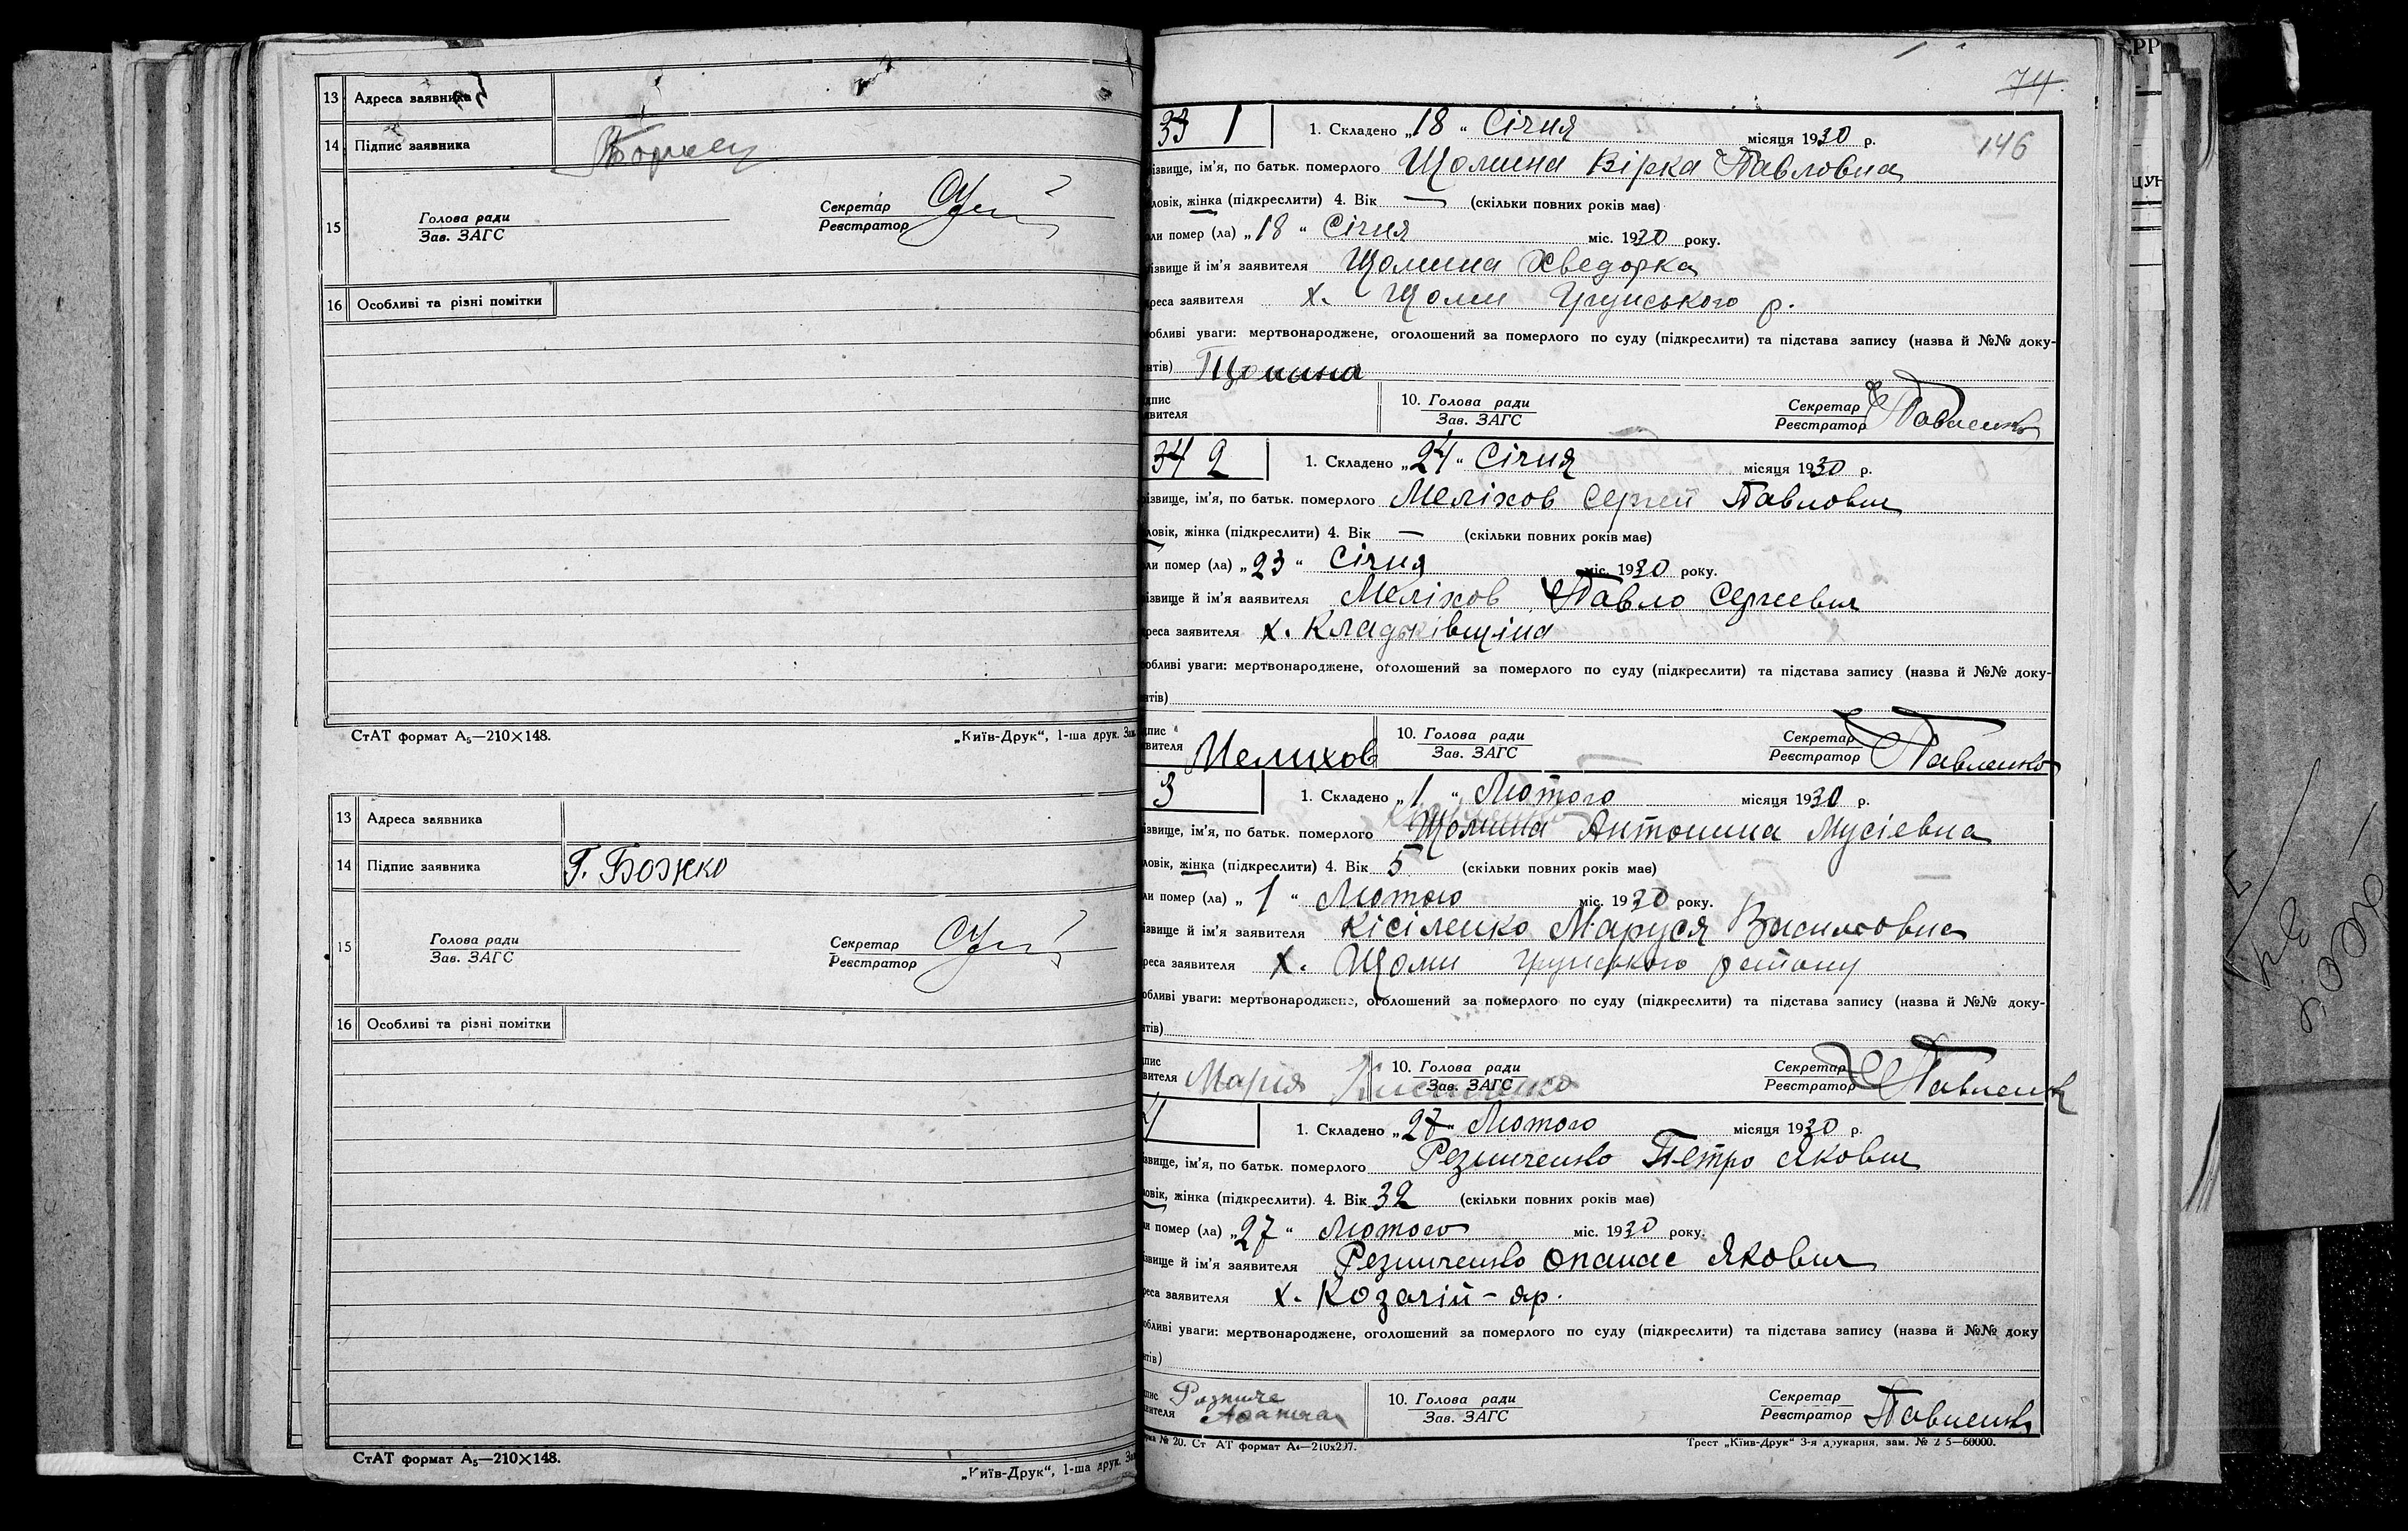 13 Адреса заявника
14 Підпис заявника
15 Голова ради
Зав. ЗАГС
Секретар
Реєстратор
16 Особливі та різні помітки
СтАТ формат А₅—210×148.
„Київ-Друк“, 1-ша друк. Зам
13 Адреса заявника
14 Підпис заявника Г. Божко
15 Голова ради
Зав. ЗАГС
Секретар
Реєстратор
16 Особливі та різні помітки
СтАТ формат А₅—210×148.
„Київ-Друк“, 1-ша друк. Зам
74
146
33 1 1. Складено „18“ Січня місяця 1930 р.
ізвище, ім'я, по батьк. померлого Щомина Вірка Павловна
ловік, жінка (підкреслити) 4. Вік — (скільки повних років має)
ли помер (ла) „18“ Січня міс. 1930 року.
ізвище й ім'я заявителя Щомина Хведорка
реса заявителя х. Щоми Грунського р.
обливі уваги: мертвонароджене, оголошений за померлого по суду (підкреслити) та підстава запису (назва й №№ доку-
нтів) Щомина
дпис
явителя
10. Голова ради
Зав. ЗАГС
Секретар
Реєстратор Павленко
34 2 1. Складено „24“ Січня місяця 1930 р.
різвище, ім'я, по батьк. померлого Меліхов Сергей Павлович
ловік, жінка (підкреслити) 4. Вік — (скільки повних років має)
ли помер (ла) „23“ Січня міс. 1930 року.
ізвище й ім'я заявителя Меліхов Павло Сергеевич
реса заявителя х. Кладьківщіна
обливі уваги: мертвонароджене, оголошений за померлого по суду (підкреслити) та підстава запису (назва й №№ доку-
нтів)
дпис
явителя Мелихов
10. Голова ради
Зав. ЗАГС
Секретар
Реєстратор Павленко
3 1. Складено „1“ Лютого місяця 1930 р.
ізвище, ім'я, по батьк. померлого Щомина Антонина Мусіевна
ловік, жінка (підкреслити) 4. Вік 5 (скільки повних років має)
ли помер (ла) „1“ Лютого міс. 1930 року.
ізвище й ім'я заявителя Кісіленко Маруся Васильовна
реса заявителя х. Щоми Грунського району
обливі уваги: мертвонароджене, оголошений за померлого по суду (підкреслити) та підстава запису (назва й №№ доку-
нтів)
дпис
явителя Мария Кисиленко
10. Голова ради
Зав. ЗАГС
Секретар
Реєстратор Павленк
4 1. Складено „27“ Лютого місяця 1930 р.
ізвище, ім'я, по батьк. померлого Резниченко Петро Якович
ловік, жінка (підкреслити). 4. Вік 32 (скільки повних років має)
ли помер (ла) „27“ Лютого міс. 1930 року.
ізвище й ім'я заявителя Резниченко Опанас Якович
реса заявителя х. Козачій-яр.
обливі уваги: мертвонароджене, оголошений за померлого по суду (підкреслити) та підстава запису (назва й №№ доку
нтів)
пис
вителя
10. Голова ради
Зав. ЗАГС
Секретар
Реєстратор Павленко
№ 20. Ст АТ формат А₄—210х297.
Трест „Київ-Друк“ 3-я друкарня, зам. № 2 5—60000.